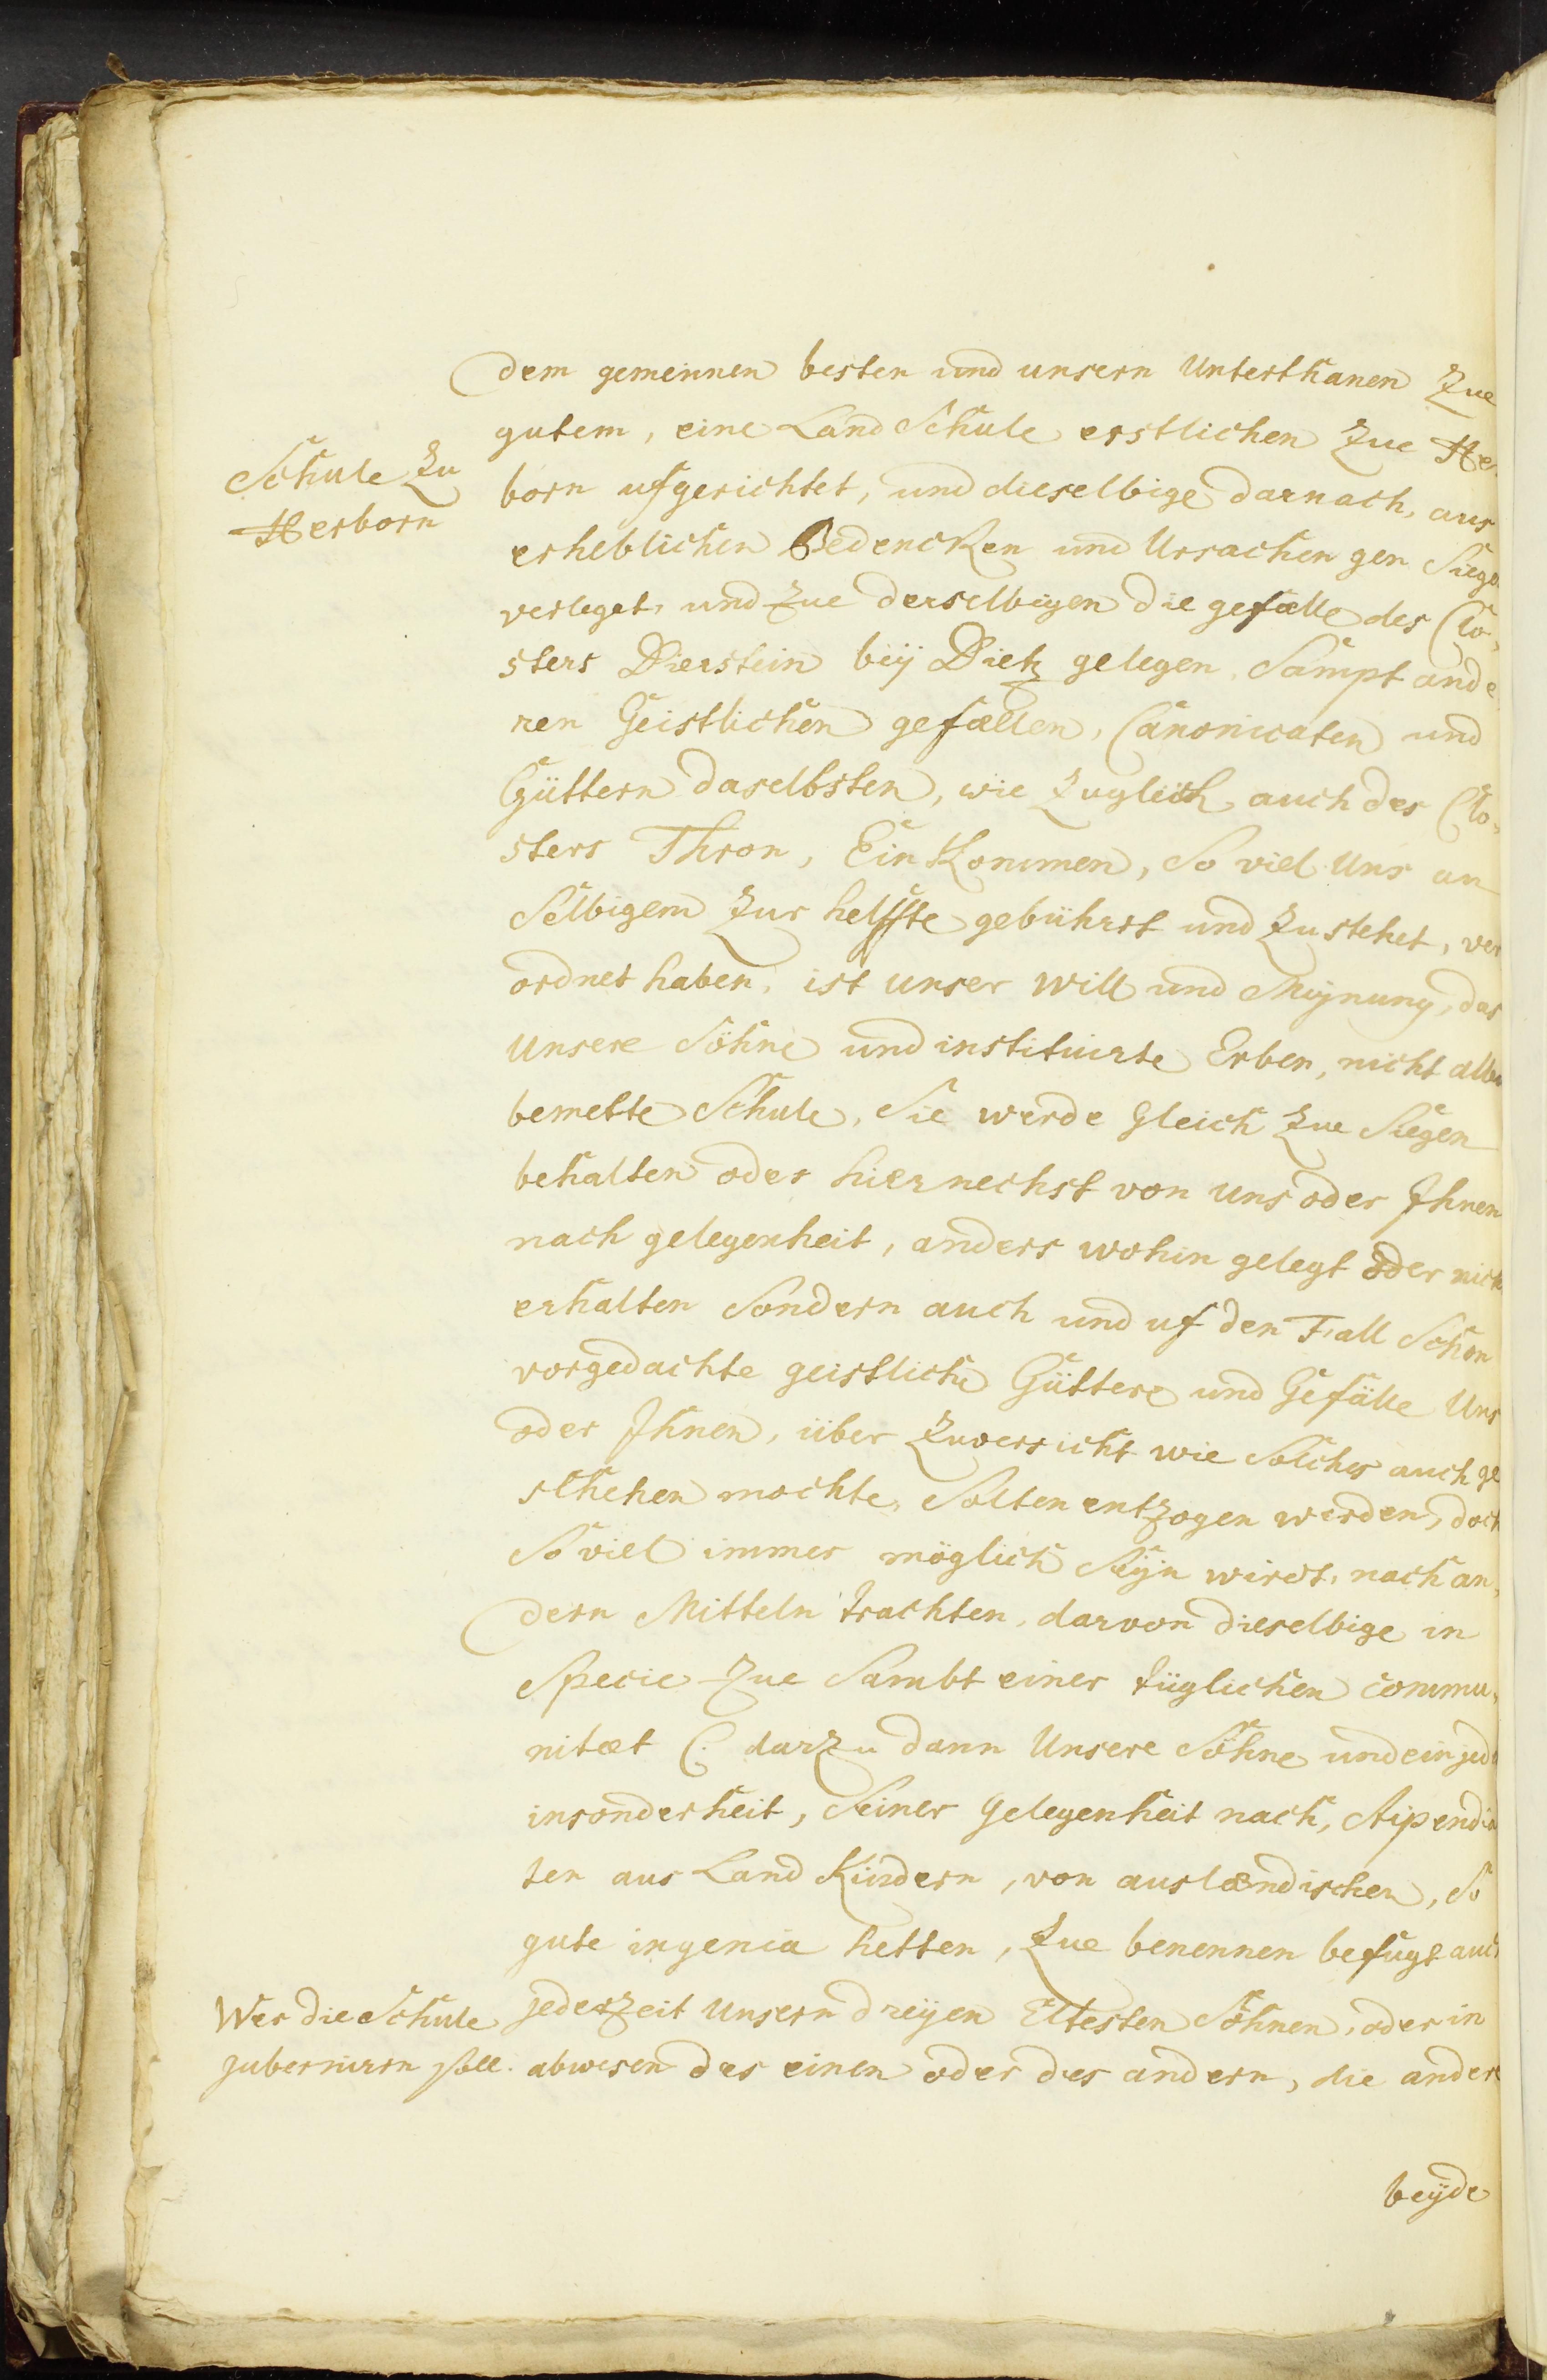 dem gemeinnen besten und unsern Unterthanen Zue
gutem, eine Land Schule erstlichen Zue Her
Schule Zu
Herborn
born ufgerichtet, und dieselbige darnach, aus
erheblichen Bedencken und Ursachen gen Siege
verleget, und Zue derselbigen die gefælle des Clo,
sters Dierstein beÿ Dietz gelegen, Sampt ande
ren Geistlichen gefællen, Canonicaten und
Güttern daselbsten, wie Zugleich auch des Clo,
sters Thron, Ein Kommen, So viel Uns an
Selbigem Zur helffte gebührt und Zustehet, ver
ordnet haben, ist unser will und Meÿnung, das
unsere Söhne und instituirte Erben, nicht allei
bemelte Schule, Sie werde Gleich Zue Siegen
behalten oder hiernechst von uns oder Ihnen
nach gelegenheit, anders wohin gelegt oder nicht
erhalten Sondern auch und uf den Fall Schon
vorgedachte geistliche Güttere und Gefälle Uns
oder Ihnen, über Zuversicht wie Solches auch ge
schehen mochte, Solten entzogen werden, doch
So viel immer möglich Seÿn wirdt, nach an,
dern Mitteln trachten, darvon dieselbige in
Specie Zue Sambt einer tüglichen commu,
nitæt (: darzu dann Unsere Söhne und ein jede
insonderheit, Seiner Gelegenheit nach, Stipendia
ten aus Land Kindern, von auslændischen, So
gute ingenia hetten, Zue benennen befugt auch
Wer die Schule
guberniren soll.
jederzeit unsern dreÿen Eltesten Söhnen, oder in
abwesen des einen oder des andern, die andere
beÿde